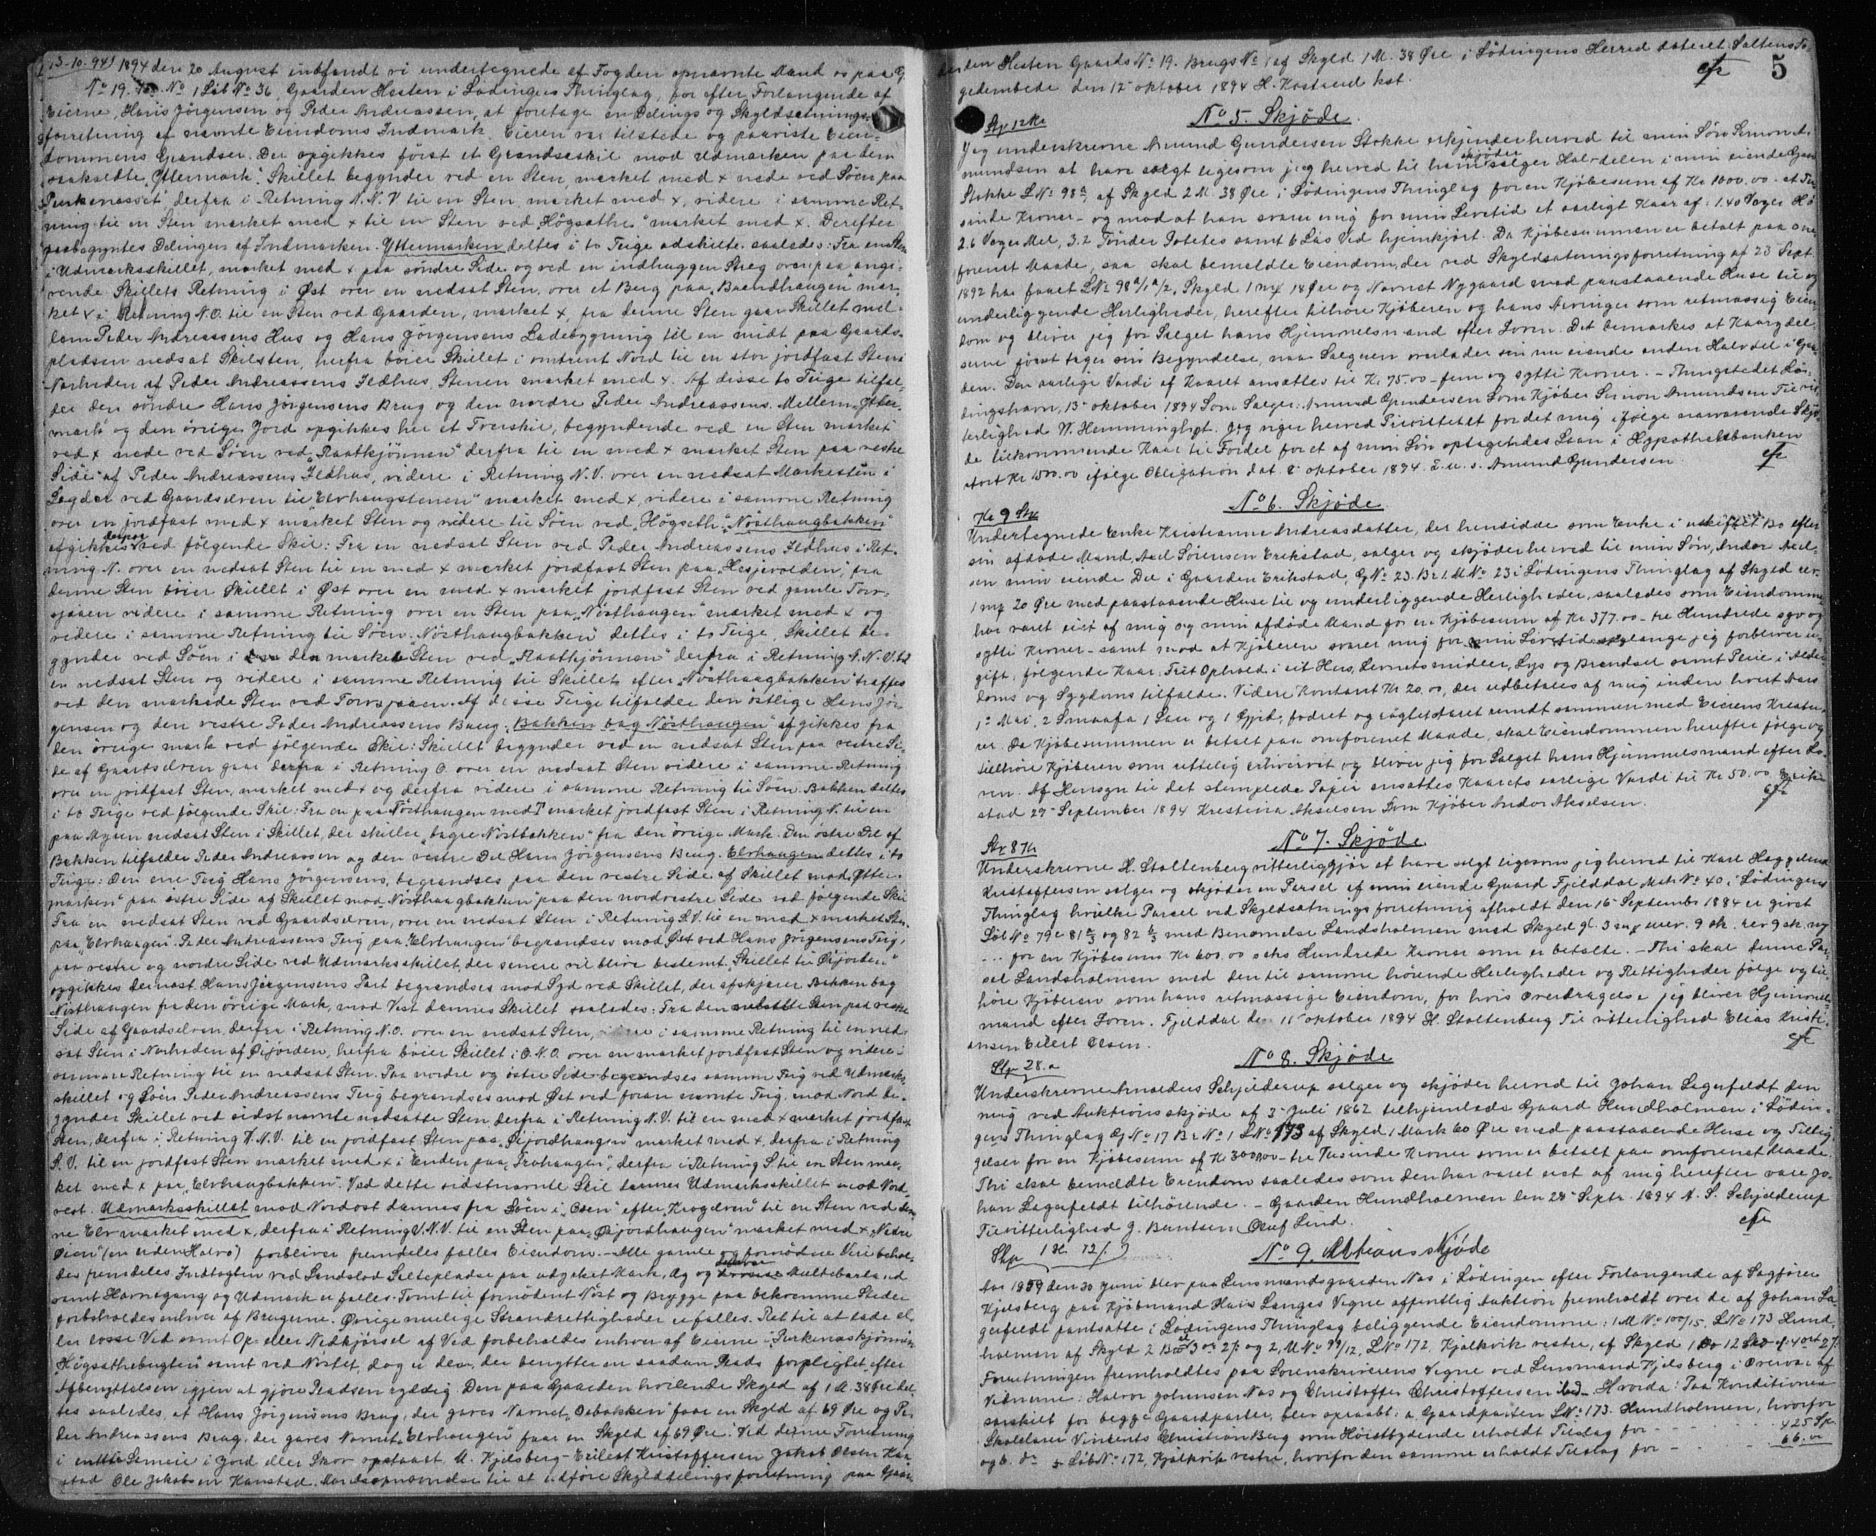 13-10-94) 1894 den 20 August indfandt vi undertegnede af Fogden opnævnte Mænd os paa G
No 19. No 1 Løb No 36, Gaarden Hesten i Lødingens Thinglag, for efter Forlangende af
Eierne, Hans Jørgensen og Peder Andreassen, at foretage en Delings og Skyldsætnings
forretning af nævnte Eiendoms Indmark. Eieren var tilstede og paaviste Eien-
dommens Grændser. Der opgikkes først et Grændseskil mod Udmarken paa den
saakaldte "Yttermark". Skillet begynder ved en Sten, mærket med x nede ved Søen paa
derfra i Retning N.N.V til en Sten, mærket med x, videre i samme Ret-
ning til en Sten mærket med x til en Sten ved "Høgsæthe" mærket med x. Derefter
paabegyntes Delingen af Indmarken. Yttermarken deltes i to Teige adskilte saaledes: Fra en Sten
i Udmarksskillet, mærket med x paa søndre Side og ved en indhuggen Streg oven paa angi-
vende Skillets Retning i Øst over en nedsat Sten, over et Berg paa "Baandhaugen" mær-
ket x i Retning N.O. til en Sten ved Gaarden, mærket x, fra denne Sten gaar Skillet mel-
lem Peder Andreassens Hus og Hans Jørgensens Ladebygning til en midt paa Gaards-
pladsen nedsat Skilsten, herfra bøier Skillet i omtrent Nord til en stor jordfast Sten i
Norheden af Peder Andreassens Ildhus, Stenen mærket med x. Af disse to Teige tilfal-
der den søndre Hans Jørgensens Brug og den nordre Peder Andreassens. Mellem "Ytter-
mark" og den øvrige Jord opgikkes her et Tverskil, begyndende ved en Sten mærket
ved x nede ved Søen ved "Raatkjønnen" derfra til en med x mærket Sten paa vestre
Side af Peder Andreassens Ildhus, videre i Retning N.V. over en nedsat Markesten i
ved Gaardselven til "Elvhaugstenen" mærket med x, videre i samme Retning
over en jordfast med x mærket Sten og videre til Søen ved "Høgseth". "Nøsthaugbakken"
afgikkes derpaa ved følgende Skil: Fra en nedsat Sten ved Peder Andreassens Ildhus i Ret-
ning N. over en nedsat Sten til en med x mærket jordfast Sten paa "Hesjevolden", fra
denne Sten bøier Skillet i Øst over en med x mærket jordfast Sten ved gamle Torv-
sjaaen videre i samme Retning over en Sten paa "Nøsthaugen" mærket med x og
videre i samme Retning til Søen. Nøsthaugbakken deltes i to Teige, Skillet be-
gynder ved Søen i den mærket Sten ved "Raatkjønnen" derfra i Retning N.N.V. til
en nedsat Sten og videre i samme Retning til Skillet efter "Nøsthaugbakken" træffes
ved den mærkede Sten ved Torvsjaaen. Af disse Teige tilfalder den østlige Hans Jør-
gensen og den vestre Peder Andreassens Brug. Bakken bag Nøsthaugen afgikkes fra
den øvrige mark ved følgende Skil: Skillet begynder ved en nedsat Sten paa vestre Si-
de af Gaardselven gaar derfra i Retning O. over en nedsat Sten videre i samme Retning
over en jordfast Sten, mærket med x og derfra videre i samme Retning til Søen. Bakken deltes
i to Teige ved følgende Skil: Fra en paa Nøsthaugen med mærket jordfast Sten i Retning N. til en
paa Myren nedsat Sten i Skillet, der skiller "bagre Nøstbakken" fra den øvrige Mark. Den østre Del af
Bakken tilfalder Peder Andreassen og den vestre Del Hans Jørgensens Brug. Elvhaugen deltes i to
Teige: Den ene Teig Hans Jørgensens, begrændses paa den vestre Side af Skillet mod "Ytter-
marken" paa østre Side af Skillet mod "Nøsthaugbakken" paa den nordvestre Side ved følgende Skil
Fra en nedsat Sten ved Gaardselven, over en nedsat Sten i Retning S.V. til en med x mærket Sten
paa "Elvhaugen". Peder Andreassens Teig paa "Elvhaugen" begrændses mod Øst ved Hans Jørgensens Teig,
paa vestre og nordre Side ved Udmarksskillet, der senere vil blive bestemt. Skillet til "Øijorden"
opgikkes dernæst Hans Jørgensens Part begrændses mod Syd ved Skillet, der afskjærer Bakken bag
Nøsthaugen fra den øvrige Mark, mod Vest dannes Skillet saaledes: Fra den nedsatte Sten paa vestre
Side af Gaardselven, derfra i Retning N.O. over en nedsat Sten, videre i samme Retning til en ned-
sat Sten i Norheden af Øijorden, herfra bøier Skillet i O.N.O. over en mærket jordfast Sten og videre i
samme Retning til en nedsat Sten. Paa nordre og østre Side begrændses samme Teig ved Udmark-
skillet og Søen. Peder Andreassens Teig begrændses mod Øst ved foran nævnte Teig, mod Nord be-
gynder Skillet ved sidst nævnte nedsatte Sten derfra i Retning N.V. til en med x mærket jordfast
Sten, derfra i Retning V.N.V. til en jordfast Sten paa "Øijordhaugen" mærket med x, derfra i Retning
S.V. til en jordfast Sten mærket med x i Enden paa "Trohaugen", derfra i Retning S til en Sten mær-
ket med x paa "Elvhaugbakken". Ved dette sidstnævnte Skil dannes Udmarksskillet mod Nord-
vest. Udmarksskillet mod Nordost dannes fra Søen i "Osen" efter "Krogelven" til en Sten ved den-
ne Elv mærket med x, derfra i Retning V.N.V. til en Sten paa "Øijordhaugen" mærket med x. "Nedre
Øien" (en liden Halvø) forbliver fremdeles fælles Eiendom. — Alle gamle og fornødne Veie behol-
des fremdeles. Indtagten ved Sandslod Sætteplads paa udyrket Mark, Ag og Multebærland
samt Havnegang og Udmark er fælles. Tomt til fornødent Nøst og Brygge paa bekvemme Steder
forbeholdes enhver af Brugerne. Øvrige mulige Strandrettigheder er fælles. Ret til at lade el-
ler losse Ved samt Op eller Nedkjørsel af Ved forbeholdes enhver af Eierne i
Høgsæthebugten samt ved Nøstet, dog er den, der benytter en saadan Plads forpligtet efter
Afbenyttelsen igjen at gjøre Pladsen ryddig. Den paa Gaarden hvilende Skyld af 1 M. 38 Øre del-
tes saaledes, at Hans Jørgensens Brug, der gaves Navnet "Osbakken" faar en Skyld af 69 Øre og Pe-
der Andreassens Brug, der gaves Navnet "Elvhaugen" faar en Skyld af 69 Øre. Ved denne Forretning
i Jord eller Skov opstaaet. M. Kjelsberg — Eilert Kristoffersen Jakob Olsen Kan-
stad Ole Jakobsen Kanstad. Mandsopnævnelse til at udføre Skylddelingsforretning paa Gaar-
den Hesten Gaards No 19. Brugs No 1 af Skyld 1 M. 38 Øre i Lødingens Herred dateret Saltens So-
gedembede den 12 oktober 1894 H. Kostrud kst.
5
No 5. Skjøde.
St 12 Kr
Jeg underskrevne Amund Gundersen Stokke erkjender herved til min Søn Simon A-
mundsen at have solgt ligesom jeg herved til ham skjøder sælger Halvdelen i min eiende Gaard
Stokke L No 98a af Skyld 2 M. 38 Øre i Lødingens Thinglag for en Kjøbesum af Kr 1000.00 – et Tu-
sinde Kroner – og mod at han svarer mig for min Levetid et aarligt Kaar af: 1.40 Voger Hø
2.6 Voger Mel, 3.2 Tønder Potetes samt 6 Læs Ved hjemkjørt. Da Kjøbesummen er betalt paa om-
forenet Maade, saa skal bemeldte Eiendom, der ved Skyldsætningsforretning af 23 Sept
1892 har faaet L No 98a/1a/2, Skyld 1 M 18 Øre og Navnet Nygaard med paastaaende Huse til og
underliggende Herligheder, herefter tilhøre Kjøberen og hans Arvinger som retmæssig Eien-
dom og bliver jeg for Salget hans Hjemmelsmand efter Loven. Det bemærkes at Kaarydel-
serne først tager sin Begyndelse, naar Sælgeren overlader sin nu eiende anden Halvdel i Gaar-
den. Den aarlige Værdi af Kaaret ansættes til Kr 75.00 – fem og sytti Kroner. – Thingstedet Lø-
dingshavn, 13 oktober 1894 Som Sælger: Amund Gundersen Som Kjøber Simon Amundsen Til vit-
terlighed W. Hemminghytt. Jeg viger herved Prioritetet for det mig ifølge nærværende Skjø-
de tilkommende Kaar til Fordel for et af min Søn optagendes Laan i Hypothekbanken
stort Kr 1500.00 ifølge Obligation dat 8 oktober 1894 D. u. s. Amund Gundersen
No 6. Skjøde.
Kr 9 St
Undertegnede Enke Kristianne Andreasdatter, der hensidder som Enke i uskiftet Bo efter
sin afdøde Mand, Axel Sørensen Erikstad, sælger og skjøder herved til min Søn, Andor Axel-
sen min eiende Del i Gaarden Erikstad, G No 23. Br 1 M No 23 i Lødingens Thinglag af Skyld rev.
1 M 20 Øre med paastaaende Huse til og underliggende Herligheder, saaledes som Eiendomme
har været eiet af mig og min afdøde Mand for en Kjøbesum af Kr 377.00 – tre Hundrede syv og
sytti Kroner – samt mod at Kjøberen svarer mig for min Levetid saalænge jeg forbliver u-
gift, følgende Kaar: Frit Ophold i sit Hus, Levnetsmidler, Lys og Brændsel samt Pleie i Alder-
doms og Sygdoms tilfælde. Videre Kontant Kr 20.00, der udbetales af mig inden hvert Aars
1 Mai, 2 Smaafæ 1 Sau og 1 Gjed, fodret og røgtet Aaret rundt sammen med Eierens Kreatu-
rer. Da Kjøbesummen er betalt paa omforenet Maade, skal Eiendommen herefter følge og
tilhøre Kjøberen som rettelig erhvervet og bliver jeg for Salget hans Hjemmelsmand efter Lo-
ven. Af Hensyn til det stemplede Papir ansættes Kaarets aarlige Værdi til Kr 50.00. Erik-
stad 27 September 1894 Krestina Akselsen Som Kjøber Andor Akselsen.
No 7. Skjøde
St 8 Kr
Underskrevne H. Stoltenberg vitterliggjør at have solgt ligesom jeg herved til Karl Haggelund
Kristoffersen sælger og skjøder en Parsel af min eiende Gaard Fjelddal Matr No 40 i Lødingens
Thinglag hvilke Parsel ved Skyldsætningsforretning afholdt den 16 Septembr 1884 er givet
Løb No 79c 81 b/3 og 82 b/3 med Benævnelse Landsholmen med Skyld gl. 3 9 sk. rev 9 sk. ny
... for en Kjøbesum Kr 600.00 seks Hundrede Kroner som er betalte. – Thi skal denne Par-
sel Landsholmen med den til samme hørende Herligheder og Rettigheder følge og til-
høre Kjøberen som hans retmæssige Eiendom, for hvis Overdragelse jeg bliver Hjemmels-
mand efter Loven. Fjelddal den 11 oktober 1894 H. Stoltenberg Til vitterlighed Elias Kristi-
ansen Eilert Olsen.
No 8. Skjøde
Stp 28.a
Underskrevne Arnoldus Schjelderup sælger og skjøder herved til Johan Lagerfeldt den
mig ved Auktionsskjøde af 3 Juli 1862 tilhjemlede Gaard Hundholmen i Lødin-
gens Thinglag G No 17 Br No 1 L No 173 af Skyld 1 Mark 60 Øre med paastaaende Huse og Tillig-
gelser for en Kjøbesum af Kr 3000.00 – tre Tusinde Kroner som er betalt paa omforenet Maade
Thi skal bemeldte Eiendom saaledes som den har været eiet af mig herefter være Jo-
han Lagerfeldt tilhørende. – Gaarden Hundholmen den 28 Septr. 1894 A. S. Schjelderup
Til vitterlighed J. Bentsen Oluf Lind.
No 9. Auktionsskjøde
Aar 1859 den 30 Juni blev paa Lensmandsgaarden Næs i Lødingen efter Forlangende af Sagfører
Kjelsberg paa Kjøbmand Hans Langes Vegne offentlig Auktion fremholdt over de af Johan La-
gerfeldt pantsatte i Lødingens Thinglag beliggende Eiendomme: 1 M No 100/15. L No 173 Hund-
holmen af Skyld 2 3 og 2, M No 99/12, L No 172, Kjølkvik vestre, af Skyld 1
Forretningen fremholdtes paa Sorenskriverens Vegne ved Lensmand Kjelsberg i Overvær af
Vidnerne: Halvor Johnsen Næs og Christoffer Christoffersen ibd – Hvorda: Paa Konditioner
særskilt for begge Gaardparter, blev opraabt: a. Gaardparten L No 173. Hundholmen, hvorfor
Skolelærer Vincents Christian Berg som Høistbydende erholdt Tilslag for – . . . . 425 Sp
og b. Do Løb No 172, Kjølkvik vestre, hvorfor den samme erholdt Tilslag for – . . . . 66. "